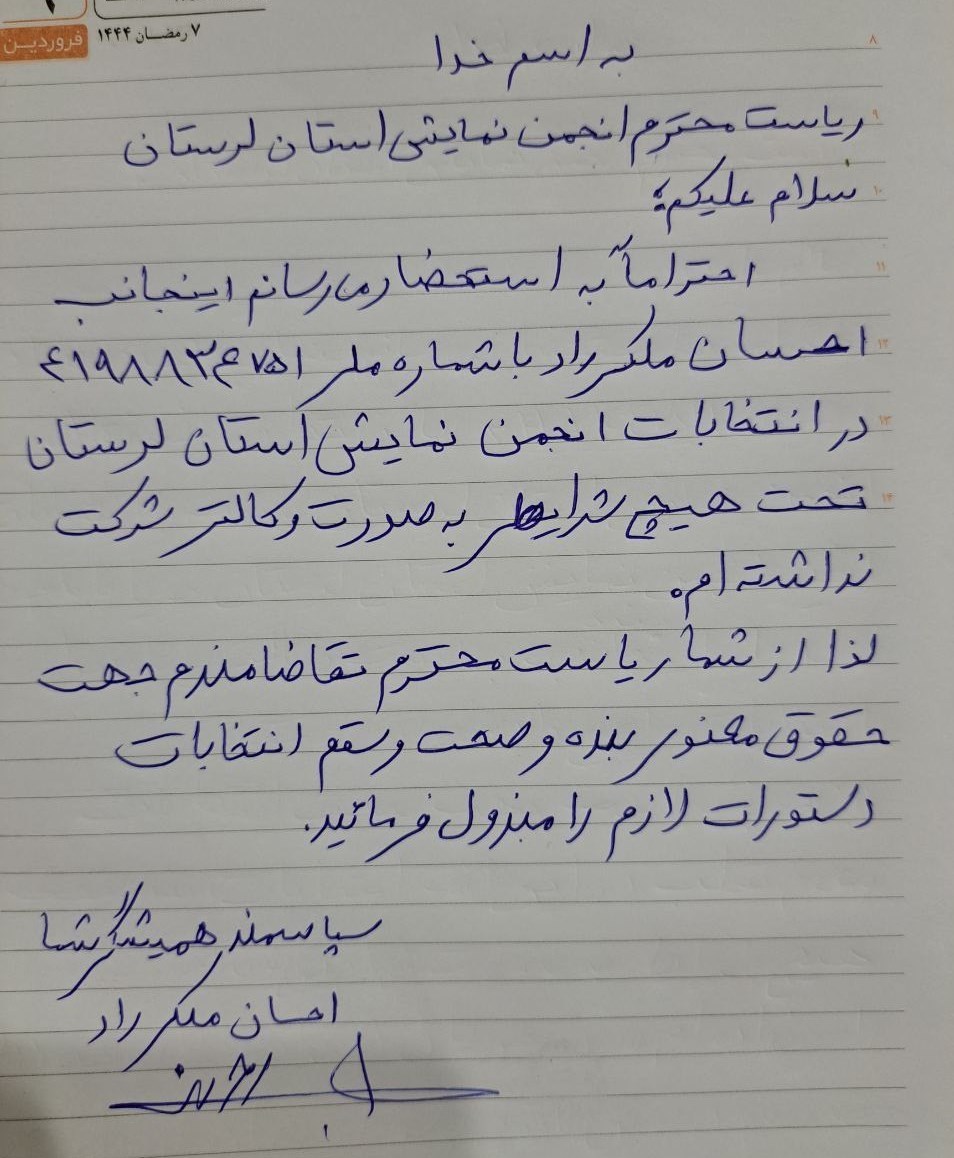 ۷ رمضان ۱۴۴۴
فروردین
۸
به اسم خدا
۹
ریاست محترم انجمن نمایش استان لرستان
۱۰
سلام علیکم؛
۱۱
احتراماً به استحضار می رسانم اینجانب
۱۲
احسان ملکی راد با شماره ملی ۴۱۹۸۸۳۴۷۵۱
۱۳
در انتخابات انجمن نمایش استان لرستان
۱۴
تحت هیچ شرایطی به صورت وکالتی شرکت
نداشته ام.
لذا از شما ریاست محترم تقاضامندم جهت
حقوق معنوی بنده و صحت و سقم انتخابات
دستورات لازم را مبذول فرمائید.
سپاسمند همیشگی شما
احسان ملکی راد